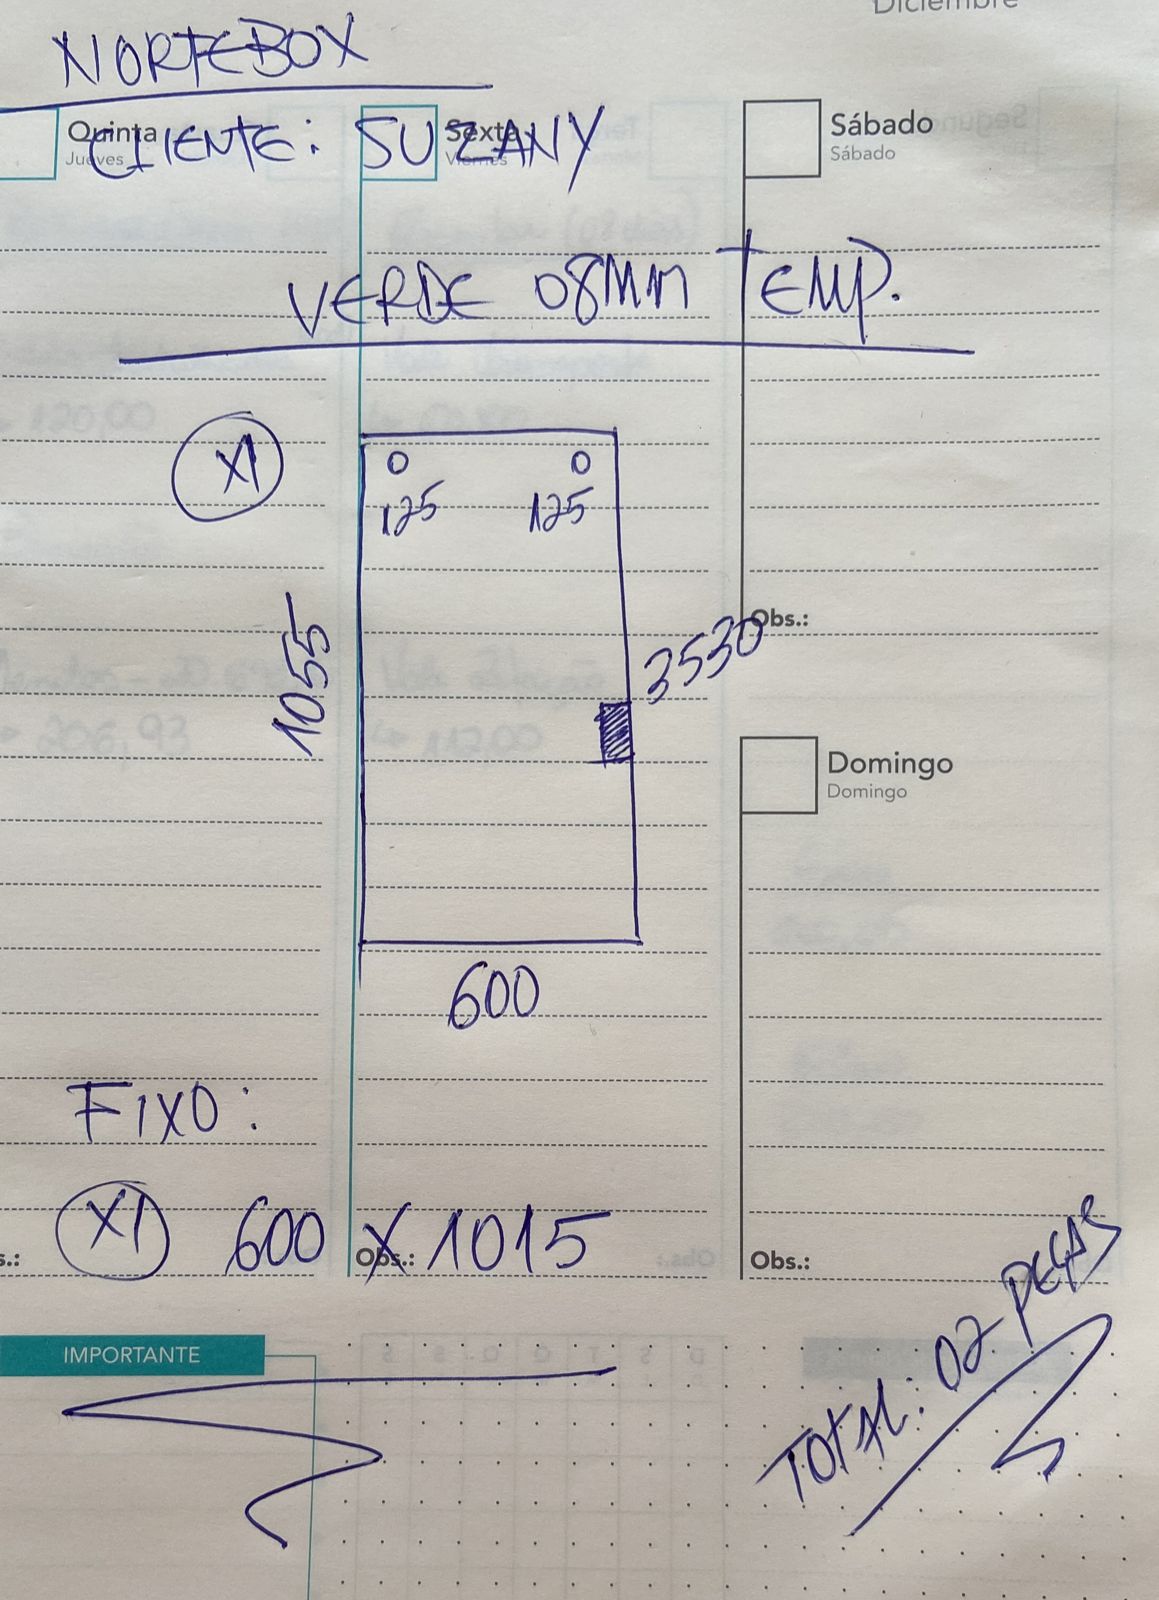 Diciembre
NORTEBOX
Quinta
Jueves
Sexta
Viernes
Sábado
Sábado
CLIENTE: SUZANY
VERDE 08MM TEMP.
X1
125 125
1055
3530
Obs.:
Domingo
Domingo
600
FIXO:
X1 600 X 1015
s.:
Obs.:
Obs.:
IMPORTANTE
TOTAL: 02 PEÇAS